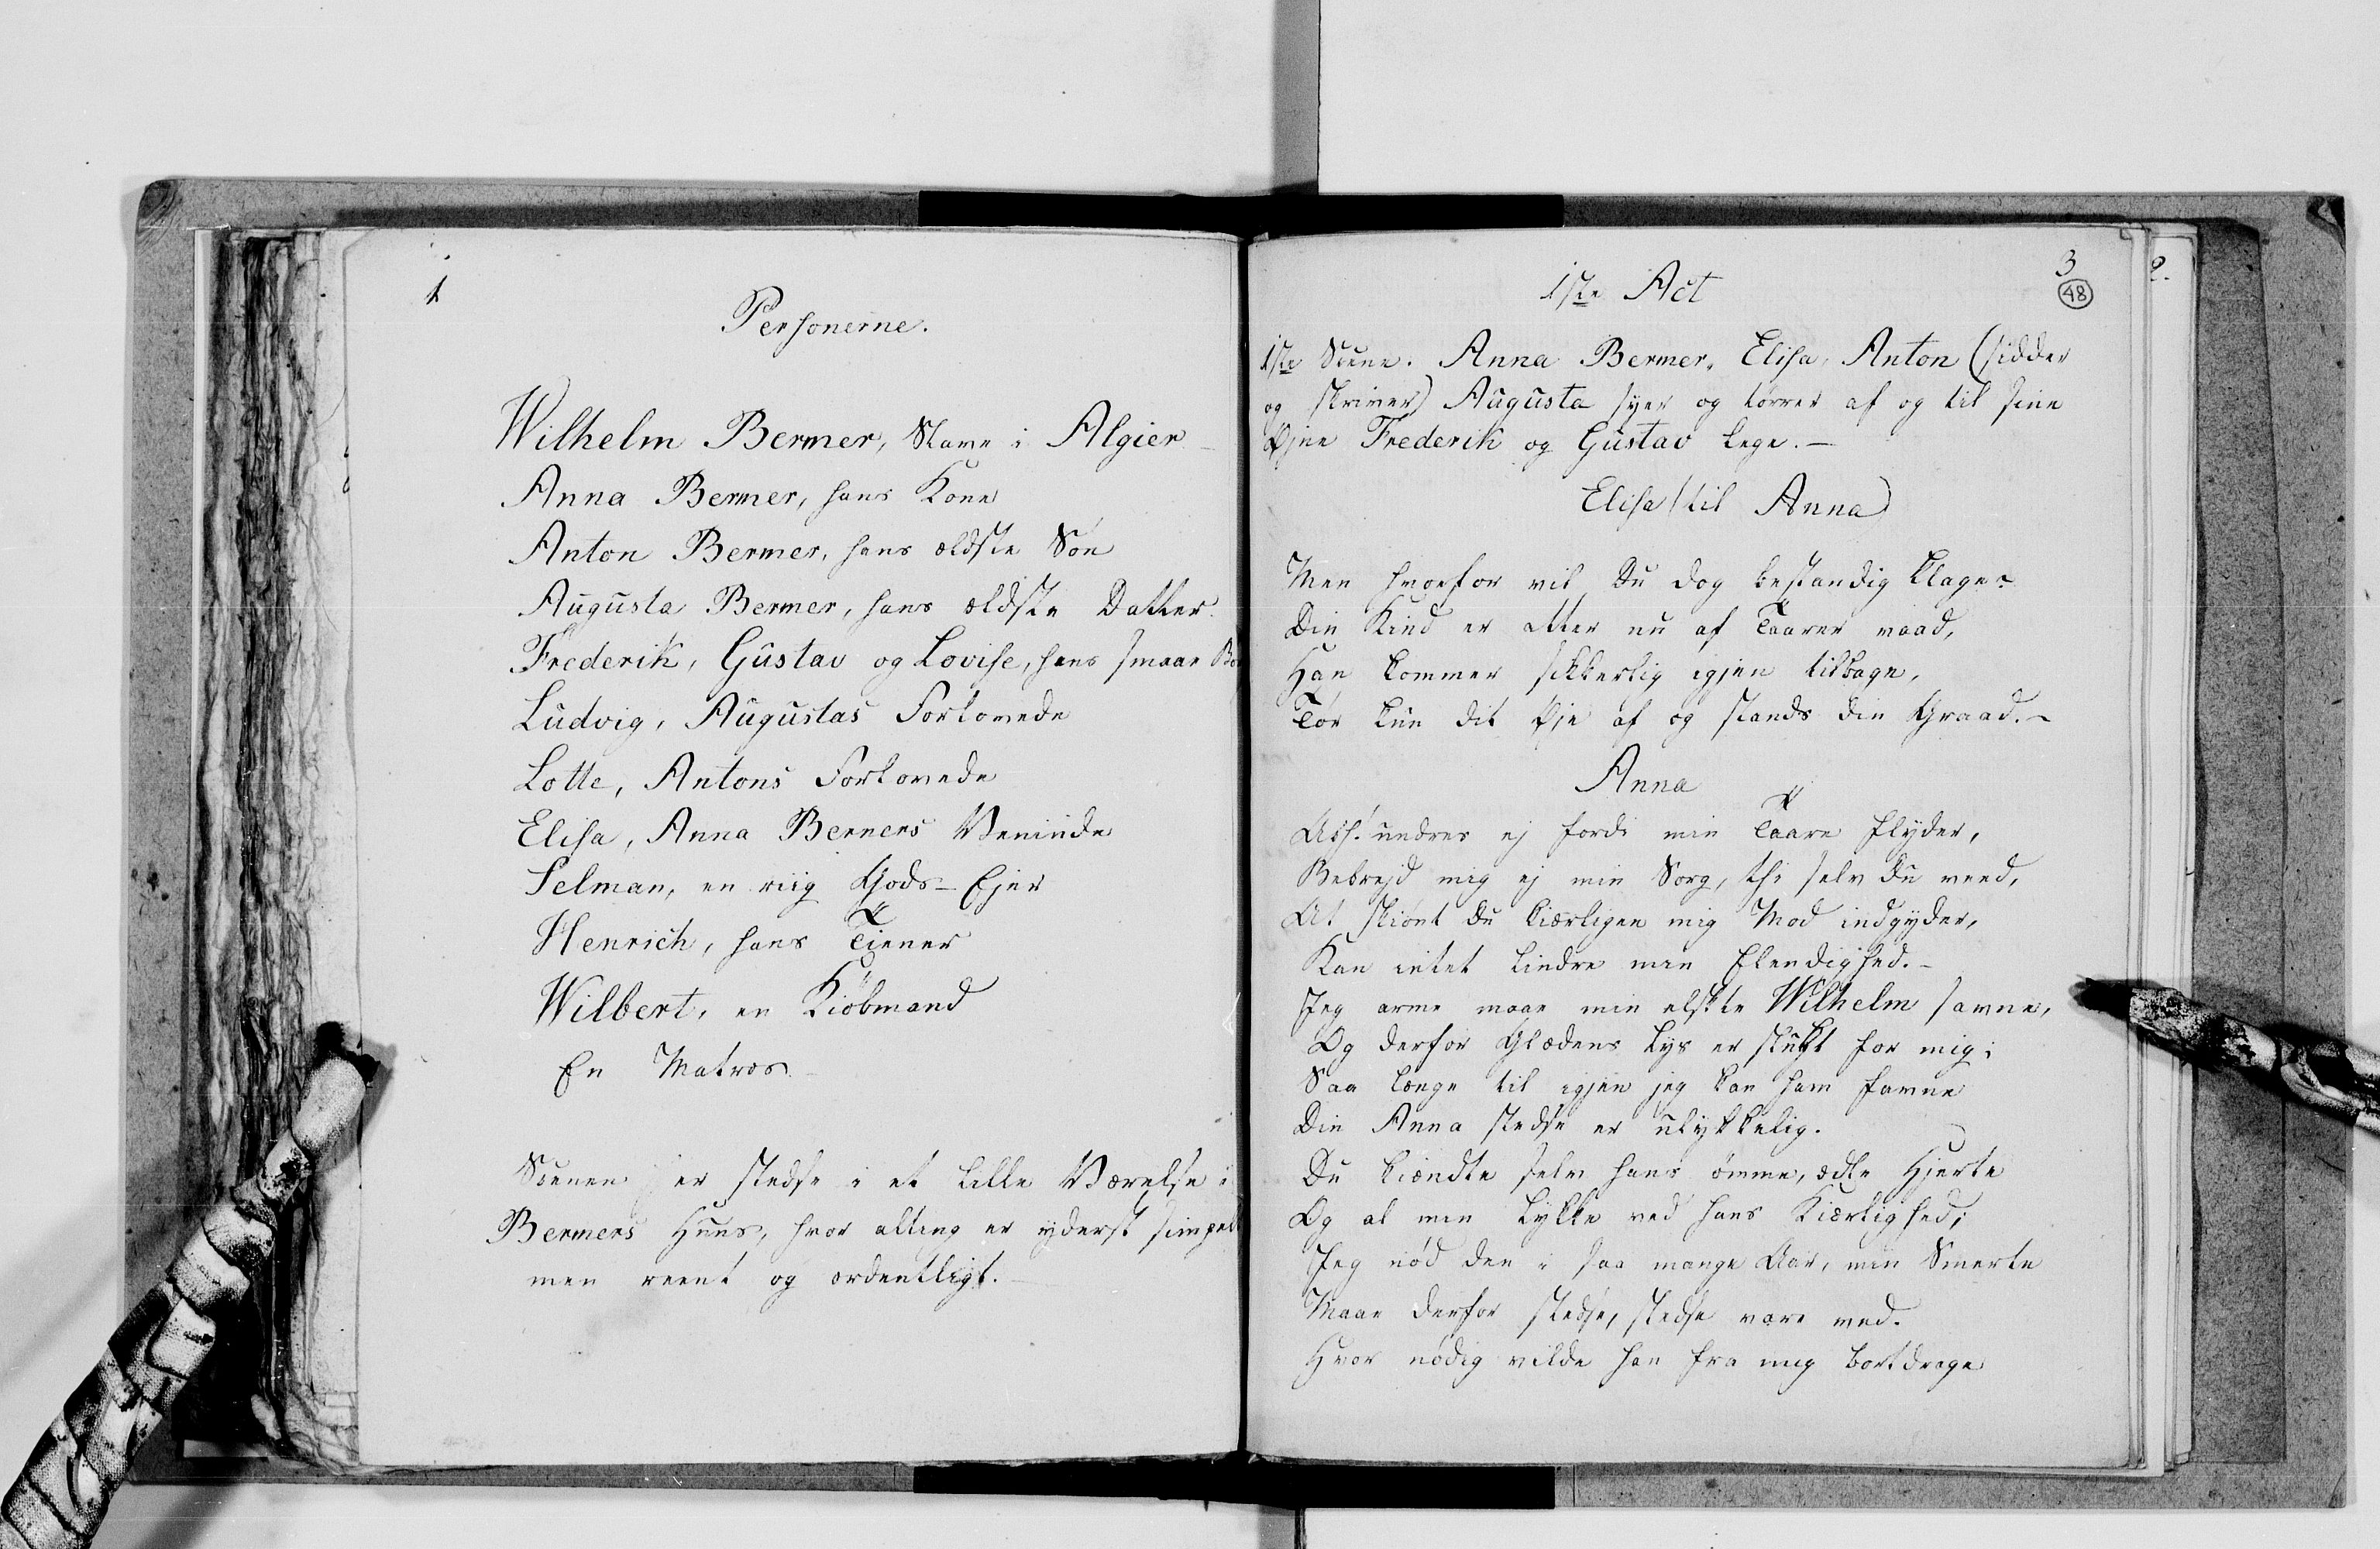 1
Personerne.
Wilhelm Bermer, Slave i Algier
Anna Bermer, hans Kone
Anton Bermer, hans ældste Søn
Augusta Bermer, hans ældste Datter.
Frederik, Gustav og Lovise, hans smaae
Ludvig, Augustas Forlovede
Lotte, Antons Forlovede
Elisa, Anna Bermers Veninde
Selman, en riig Gods-Ejer
Henrich, hans Tiener
Wilbert, en Kiøbmand
En Matros.
Scenen er stedse i et lille Værelse i
Bermers Huus, hvor alting er yderst simpelt
men reent og ordentligt.
3
48
1ste Act
1ste Scene. Anna Bermer, Elisa, Anton (sidder
og skriver) Augusta syer og tørrer af og til sine
Øjne Frederik og Gustav lege. —
Elisa (til Anna)
Men hvorfor vil du dog bestandig klage?
Din Kind er atter nu af Taarer vaad,
Han kommer sikkerlig igjen tilbage,
Tør kun dit Øje af og stands din Graad. -
Anna
Ach! undres ej fordi min Taare flyder,
Bebrejd mig ej min Sorg, thi selv du veed,
At skiønt du kiærligen mig Mod indgyder,
Kan intet lindre min Elendighed. -
Jeg arme maae min elskte Wilhelm savne,
Og derfor Glædens Lys er slukt for mig;
Saa længe til igjen jeg kan ham favne
Din Anna stedse er ulykkelig.
Du kiendte selv hans ømme, ædle Hjerte
Og al min Lykke ved hans Kiærlighed;
Jeg nød den i saa mange Aar, min Smerte
Maae derfor stedse, stedse vare ved.
Hvor nødig vilde han fra mig bortdrage
2.